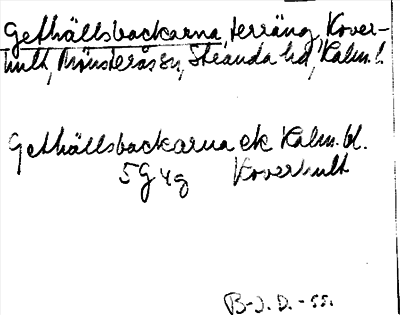 Gethällsbackarna, terräng, Kover-
hult, Mönsterås sn, Stranda hd, Kalm. l.
Gethällsbackarna ek Kalm. bl.
5G 4g Koverhult
B-J. D. -55.